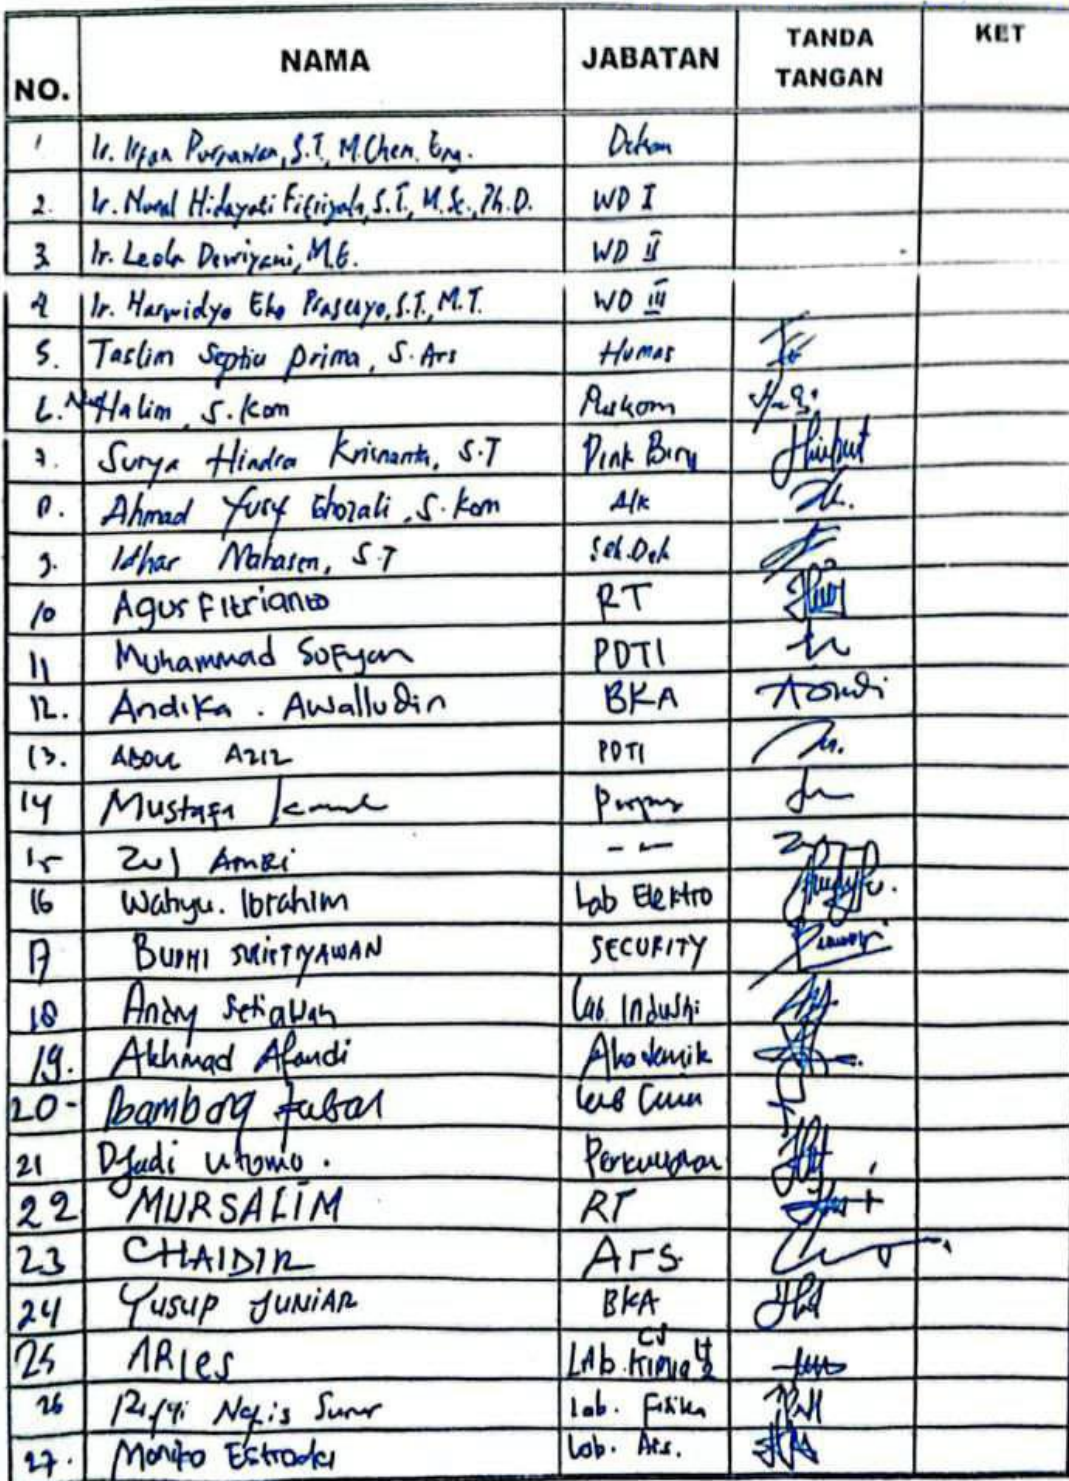 NO. NAMA JABATAN TANDA TANGAN KET
1 Ir. Irfan Purnawan, S.T., M.Chem. Eng. Dekan
2. Ir. Nurul Hidayati Fithriyah, S.T., M.Sc., Ph.D. WD I
3. Ir. Leola Dewiyani, M.E. WD II
4 Ir. Harwidyo Eko Prasetyo, S.T., M.T. WD III
5. Taslim Septia Prima, S.Ars Humas
6. Halim, S.Kom Puskom
7. Surya Hindra Krisnanta, S.T Pink Biru
8. Ahmad Yusuf Ghozali, S.Kom A/k
9. Idhar Mahasen, S.T Sek.Dek
10 Agus Fitrianto RT
11 Muhammad Sofyan PDTI
12. Andika. Awalludin BKA
13. ABDUL AZIZ PDTI
14 Mustafa
15 Zul Amri - -
16 Wahyu. Ibrahim Lab Elektro
17 SECURITY
18 Andry Setiawan Lab. Industri
19. Akhmad Afandi Akademik
20- Bambang
21 Djadi Utomo. Perkuliahan
22 MURSALIM RT
23 CHAIDIR Ars.
24 YUSUP JUNIAR BKA
25 ARIES LAb. Kimia
26 Nafis Lab. Fisika
27. Lab. Ars.